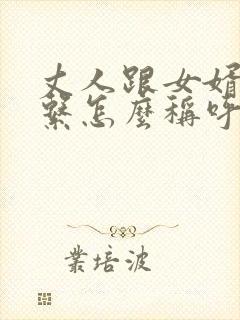 丈人跟女婿
繫怎麼稱呼
業培波